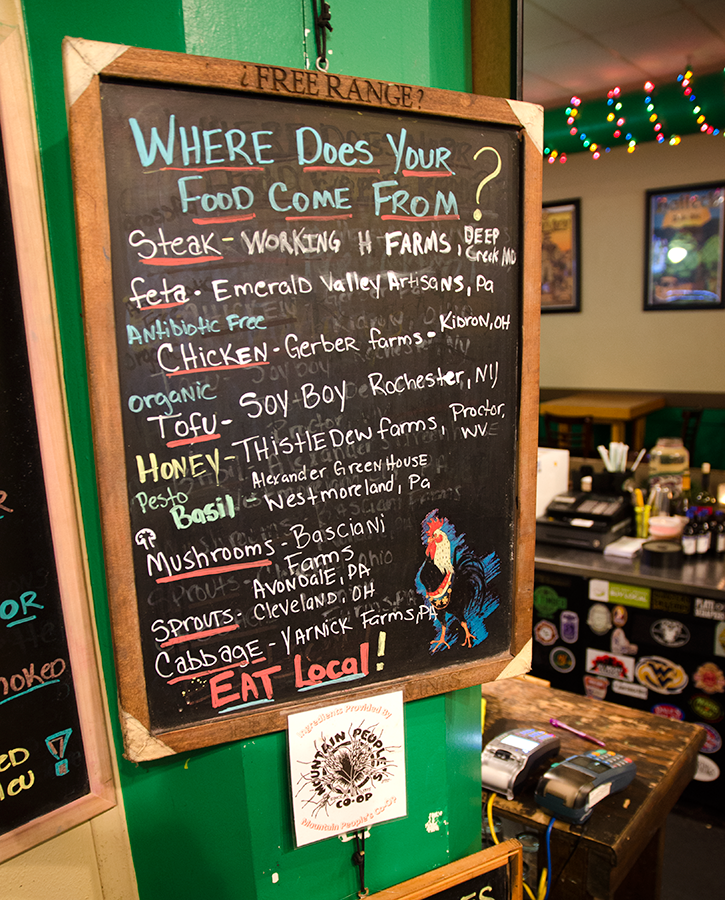 ¿FREE RANGE?
WHERE DOES YOUR
FOOD COME FROM?
Steak - WORKING H FARMS, DEEP
Creek MD
feta - Emerald Valley Artisans, Pa
Antibiotic Free
CHICKEN - Gerber farms - KIDRON, OH
organic
Tofu - SOY BOY Rochester, NY
HONEY - THISTLEDEW farms, Proctor,
WV
Pesto
Basil - Alexander GreenHOUSE
Westmoreland, Pa
Mushrooms - Basciani
Farms
AVONDALE, PA
Sprouts - Cleveland, OH
Cabbage - Yarnick Farms, PA
EAT Local!
Ingredients Provided By
MOUNTAIN PEOPLE'S
CO-OP
Mountain People's Co-Op
OR
MOKED
ED
BUY LOCAL